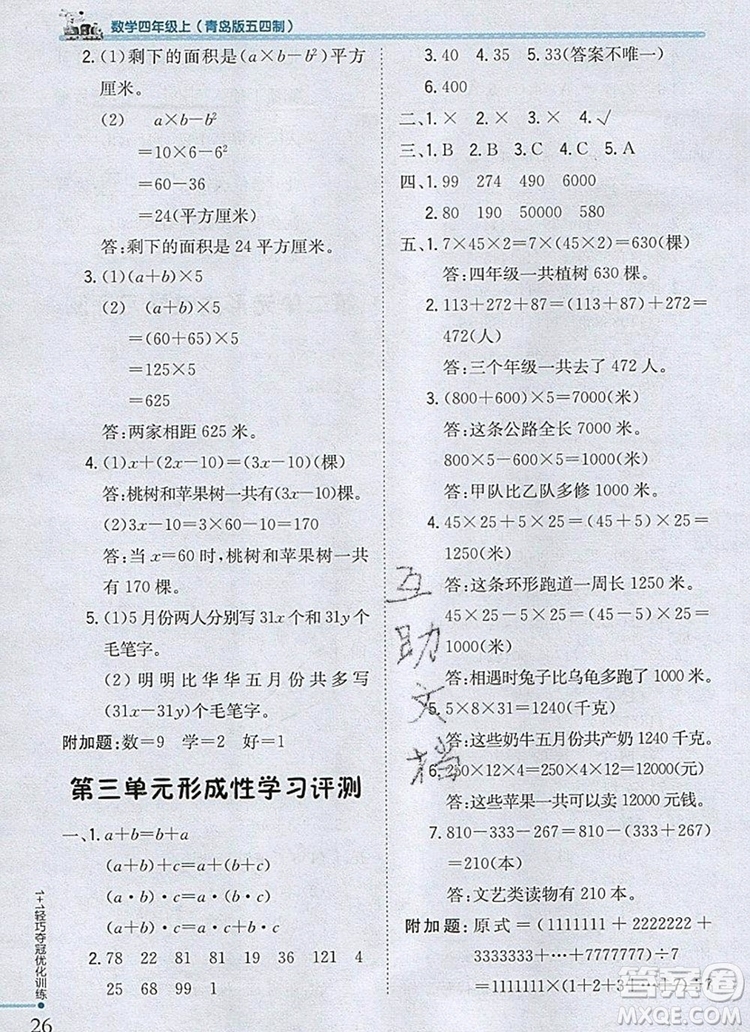 数学四年级上(青岛版五四制)
2.(1)剩下的面积是(a×b−b²)平方
厘米。
(2) a×b−b²
=10×6−6²
=60−36
=24(平方厘米)
答:剩下的面积是 24 平方厘米。
3.(1)(a+b)×5
(2) (a+b)×5
=(60+65)×5
=125×5
=625
答:两家相距 625 米。
4.(1)x+(2x−10)=(3x−10)(棵)
答:桃树和苹果树一共有(3x−10)棵。
(2)3x−10=3×60−10=170(棵)
答:当 x=60 时,桃树和苹果树一共
有 170 棵。
5.(1)5 月份两人分别写 31x 个和 31y 个
毛笔字。
(2)明明比华华五月份共多写
(31x−31y)个毛笔字。
附加题:数=9 学=2 好=1
第三单元形成性学习评测
一、1. a+b=b+a
(a+b)+c=a+(b+c)
(a·b)·c=a·(b·c)
(a+b)·c=a·c+b·c
2. 78 22 81 19 36 121 4
25 98 99 157 43 250 4
3. 40 4. 35 5. 33(答案不唯一)
6. 400
二、1. × 2. × 3. × 4. √
三、1. B 2. B 3. C 4. C 5. A
四、1. 99 274 490 6000
2. 80 190 50000 580
五、1. 7×45×2=7×(45×2)=630(棵)
答:四年级一共植树 630 棵。
2. 113+272+87=(113+87)+272=
472(人)
答:三个年级一共去了 472 人。
3.(800+600)×5=7000(米)
答:这条公路全长 7000 米。
800×5−600×5=1000(米)
答:甲队比乙队多修 1000 米。
4. 45×25+5×25=(45+5)×25=
1250(米)
答:这条环形跑道一周长 1250 米。
45×25−5×25=(45−5)×25=
1000(米)
答:相遇时兔子比乌龟多跑了 1000 米。
5. 5×8×31=1240(千克)
答:这些奶牛五月份共产奶 1240 千克。
6. 250×12×4=250×4×12=12000(元)
答:这些苹果一共可以卖 12000 元钱。
7. 810−333−267=810−(333+267)
=210(本)
答:文艺类读物有 210 本。
附加题:原式=(1111111+2222222+
3333333+…+7777777)÷7
=(1111111×1+1111111×
互助文档
1+1轻巧夺冠优化训练
26
答案圈
MXQE.COM